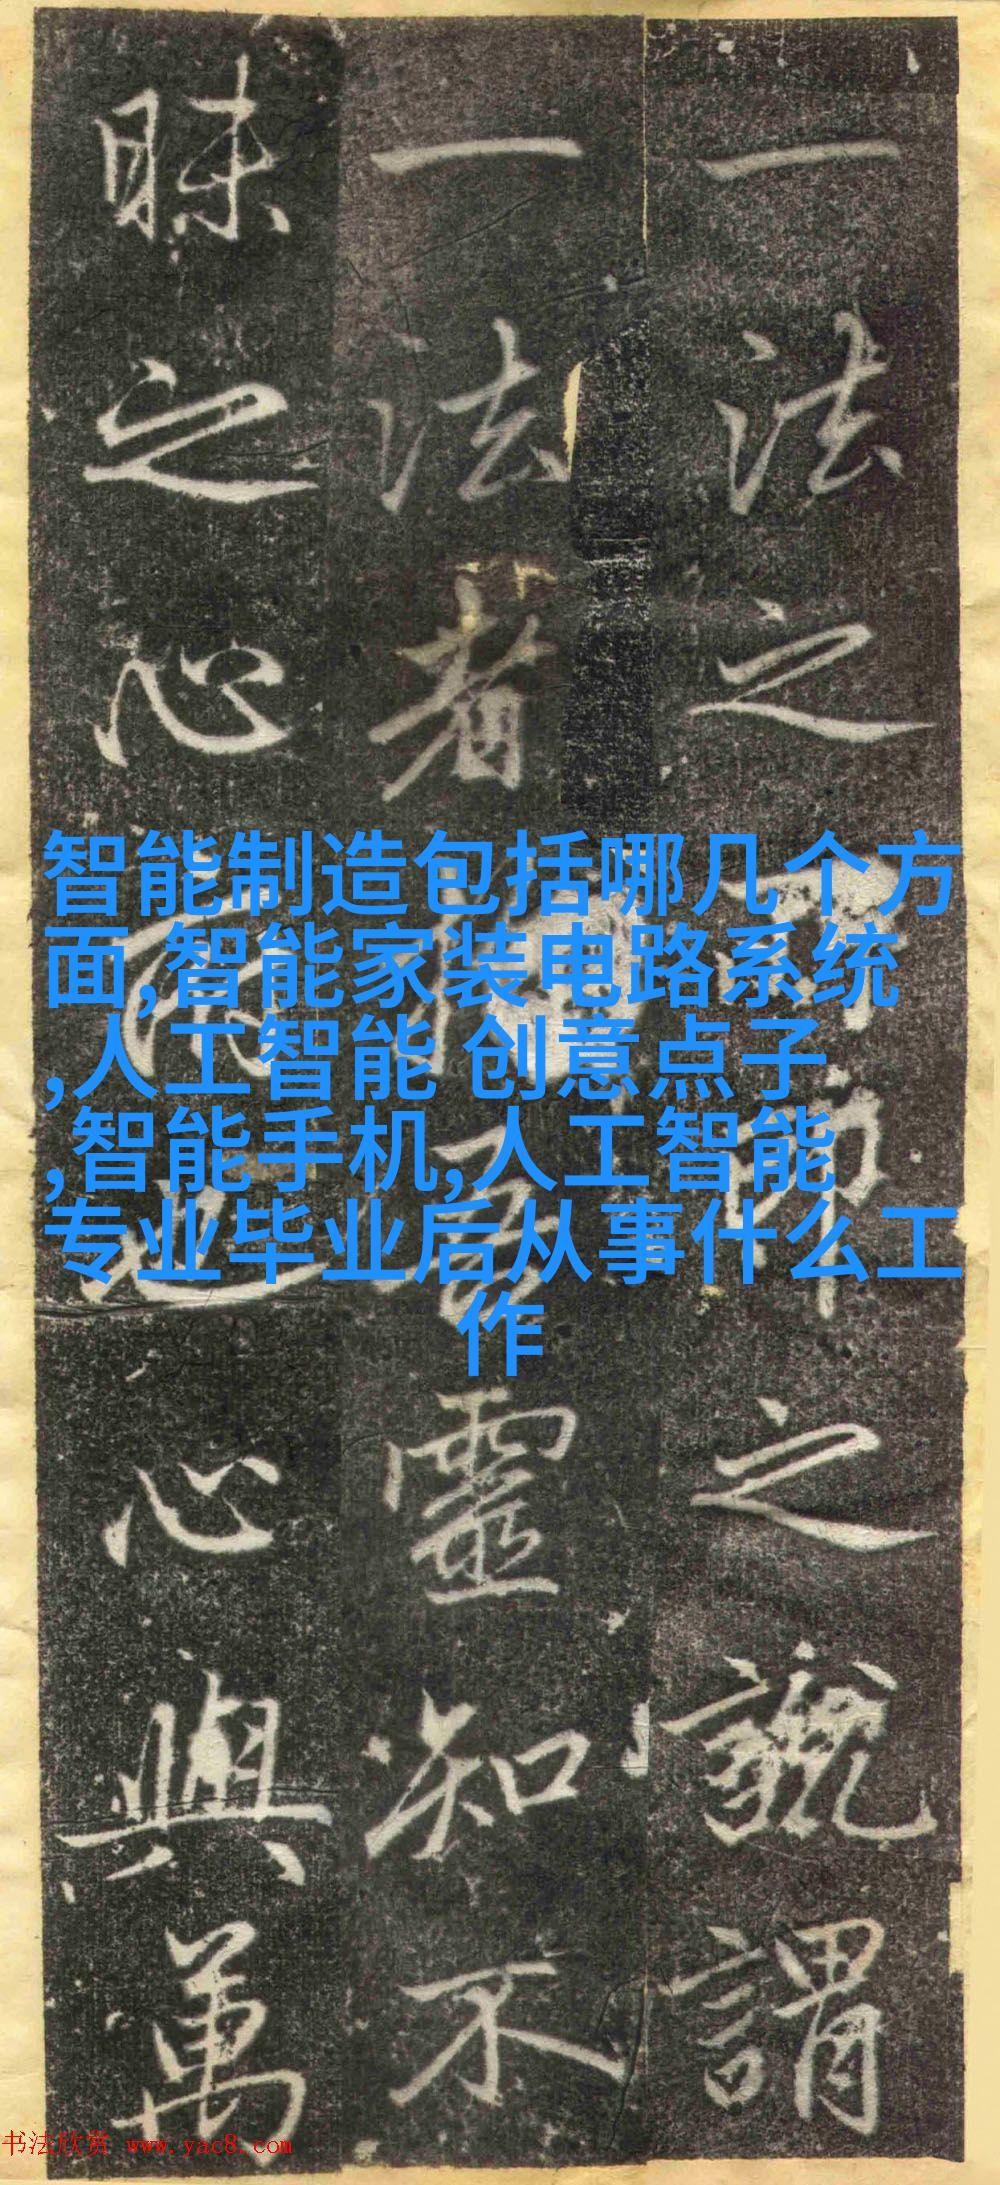 一法之印之號謂
一法者吾靈知不
昧之心也心與萬
智能制造包括哪几个方
面,智能家装电路系统
,人工智能 创意点子
,智能手机,人工智能
专业毕业后从事什么工
作
书法欣赏 www.yac8.com